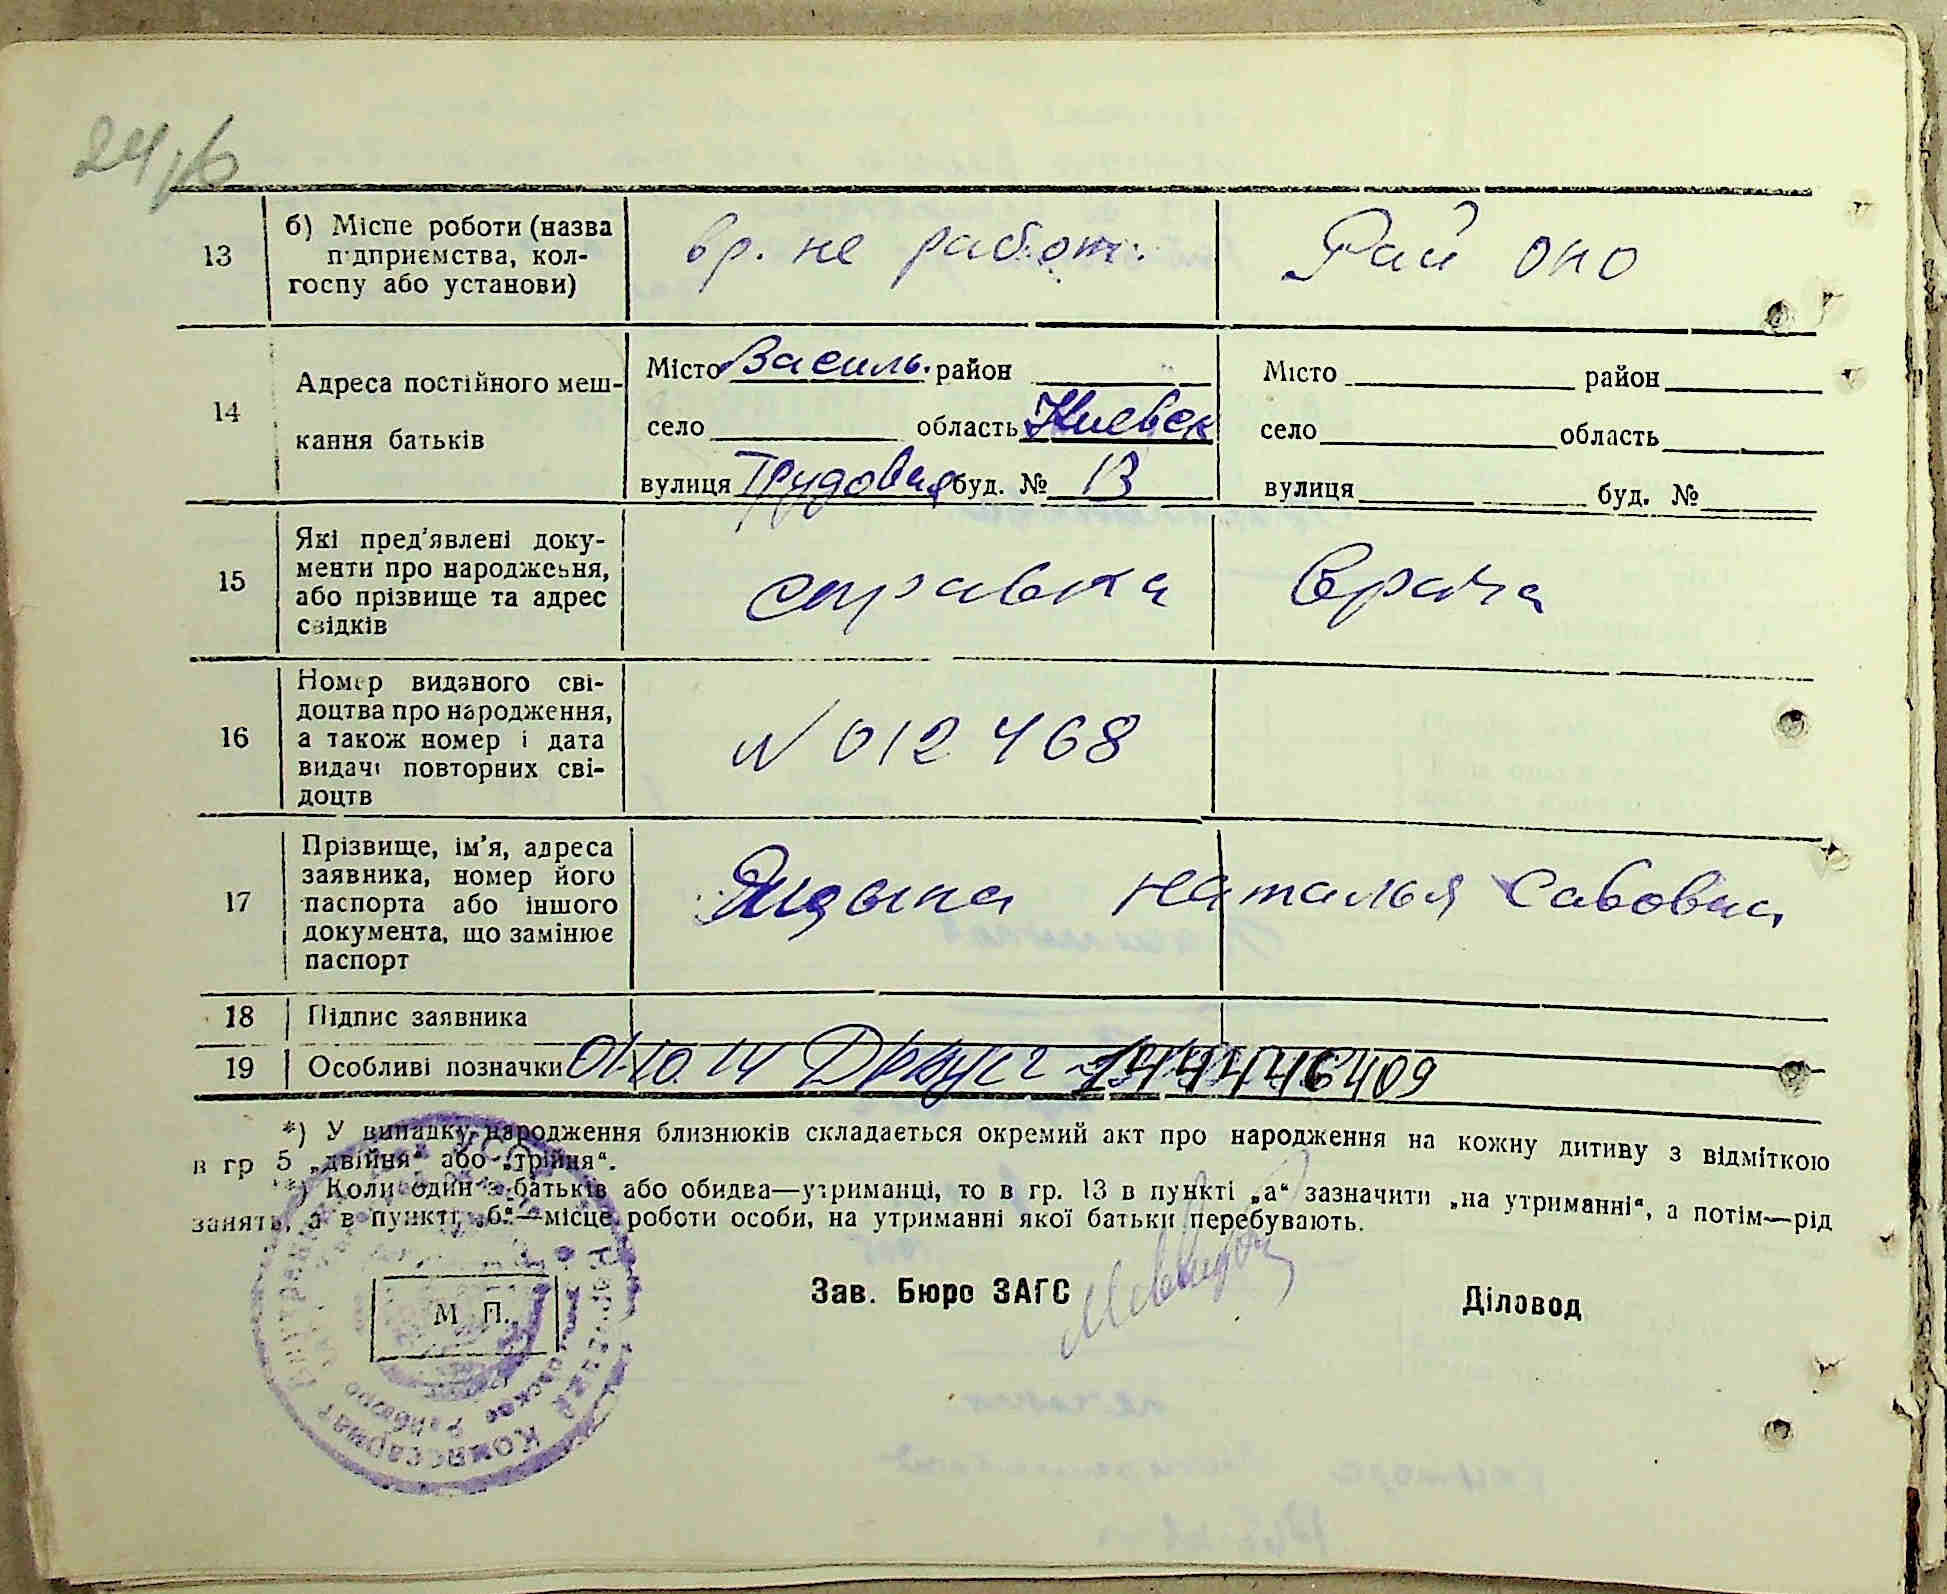 13
б) Місце роботи (назва
підприємства, кол-
госпу або установи)
вр. не работ.
Рай оно
14
Адреса постійного меш-
кання батьків
Місто Василь. район
село область Киевск
вулиця Трудовая буд. № 13
Місто район
село область
вулиця буд. №
15
Які пред'явлені доку-
менти про народження,
або прізвище та адрес
свідків
справка врача
16
Номер виданого сві-
доцтва про народження,
а також номер і дата
видачі повторних сві-
доцтв
N 012468
17
Прізвище, ім'я, адреса
заявника, номер його
паспорта або іншого
документа, що замінює
паспорт
Наталья Савовна
18 Підпис заявника
19 Особливі позначки 01.10.14
*) У випадку народження близнюків складається окремий акт про народження на кожну дитину з відміткою
в гр 5 „двійня“ або „трійня“.
**) Коли один з батьків або обидва—утриманці, то в гр. 13 в пункті „а“ зазначити „на утриманні“, а потім—рід
занять, а в пункті „б“—місце роботи особи, на утриманні якої батьки перебувають.
М П.
Зав. Бюро ЗАГС
Діловод